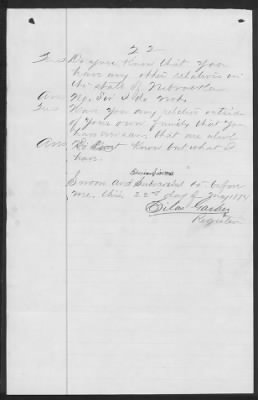 22
Do you know that you
have any other relatives in
the state of Nebraska
Ans No Sir I do not
Have you any relatives outside
of your own family that you
know are alive
Ans I do not know but what I
have.
Sworn and Subscribed to before
me, this 22nd day of May 187
Silas Garber
Register